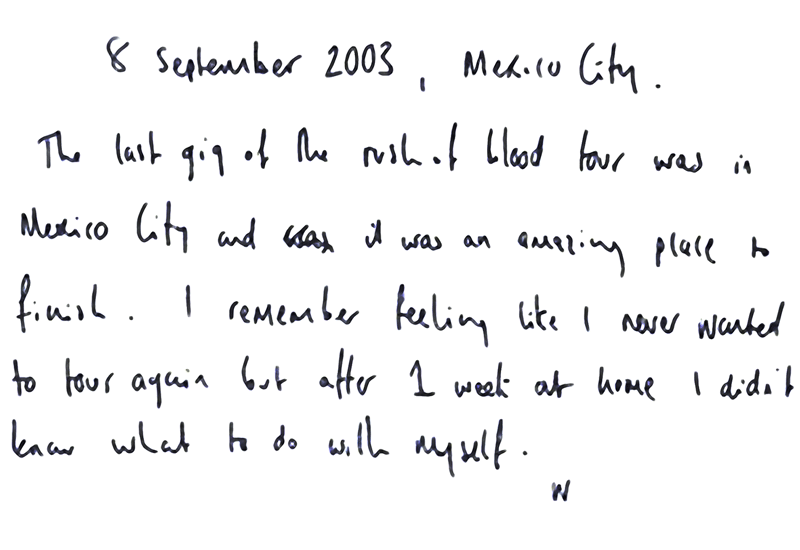 8 September 2003, Mexico City.
The last gig of the rush of blood tour was in
Mexico City and it was an amazing place to
finish. I remember feeling like I never wanted
to tour again but after 1 week at home I didn't
know what to do with myself.
W